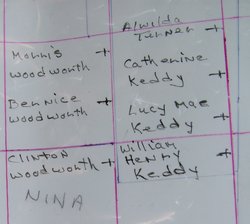 Almilda
Turner +
Morris +
Woodworth
Catherine +
Keddy
Bernice +
Woodworth
Lucy Mae
Keddy +
Clinton
Woodworth +
William +
Henry
Keddy
NINA